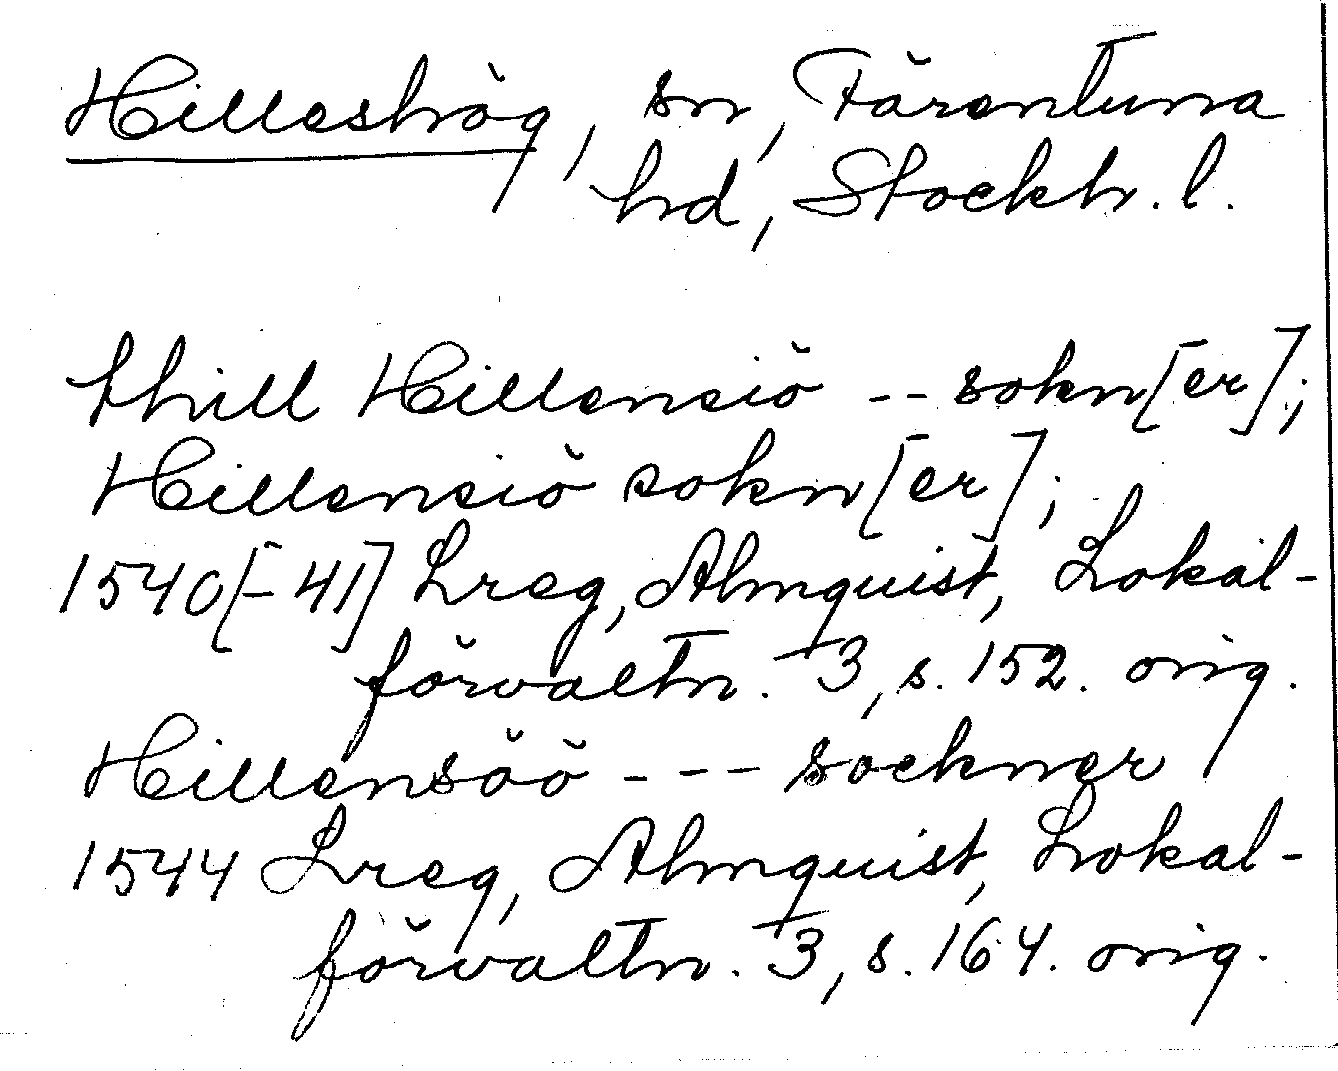 Hilleshög, sn, Färentuna
hd, Stockh. l.
thill Hillensiö -- sokn[er];
Hillensiö sokn[er];
1540[-41] Lreg, Almquist, Lokal-
förvaltn. 3, s. 152. orig.
Hillensöö --- sockner
1544 Lreg, Almquist, Lokal-
förvaltn. 3, s. 164. orig.